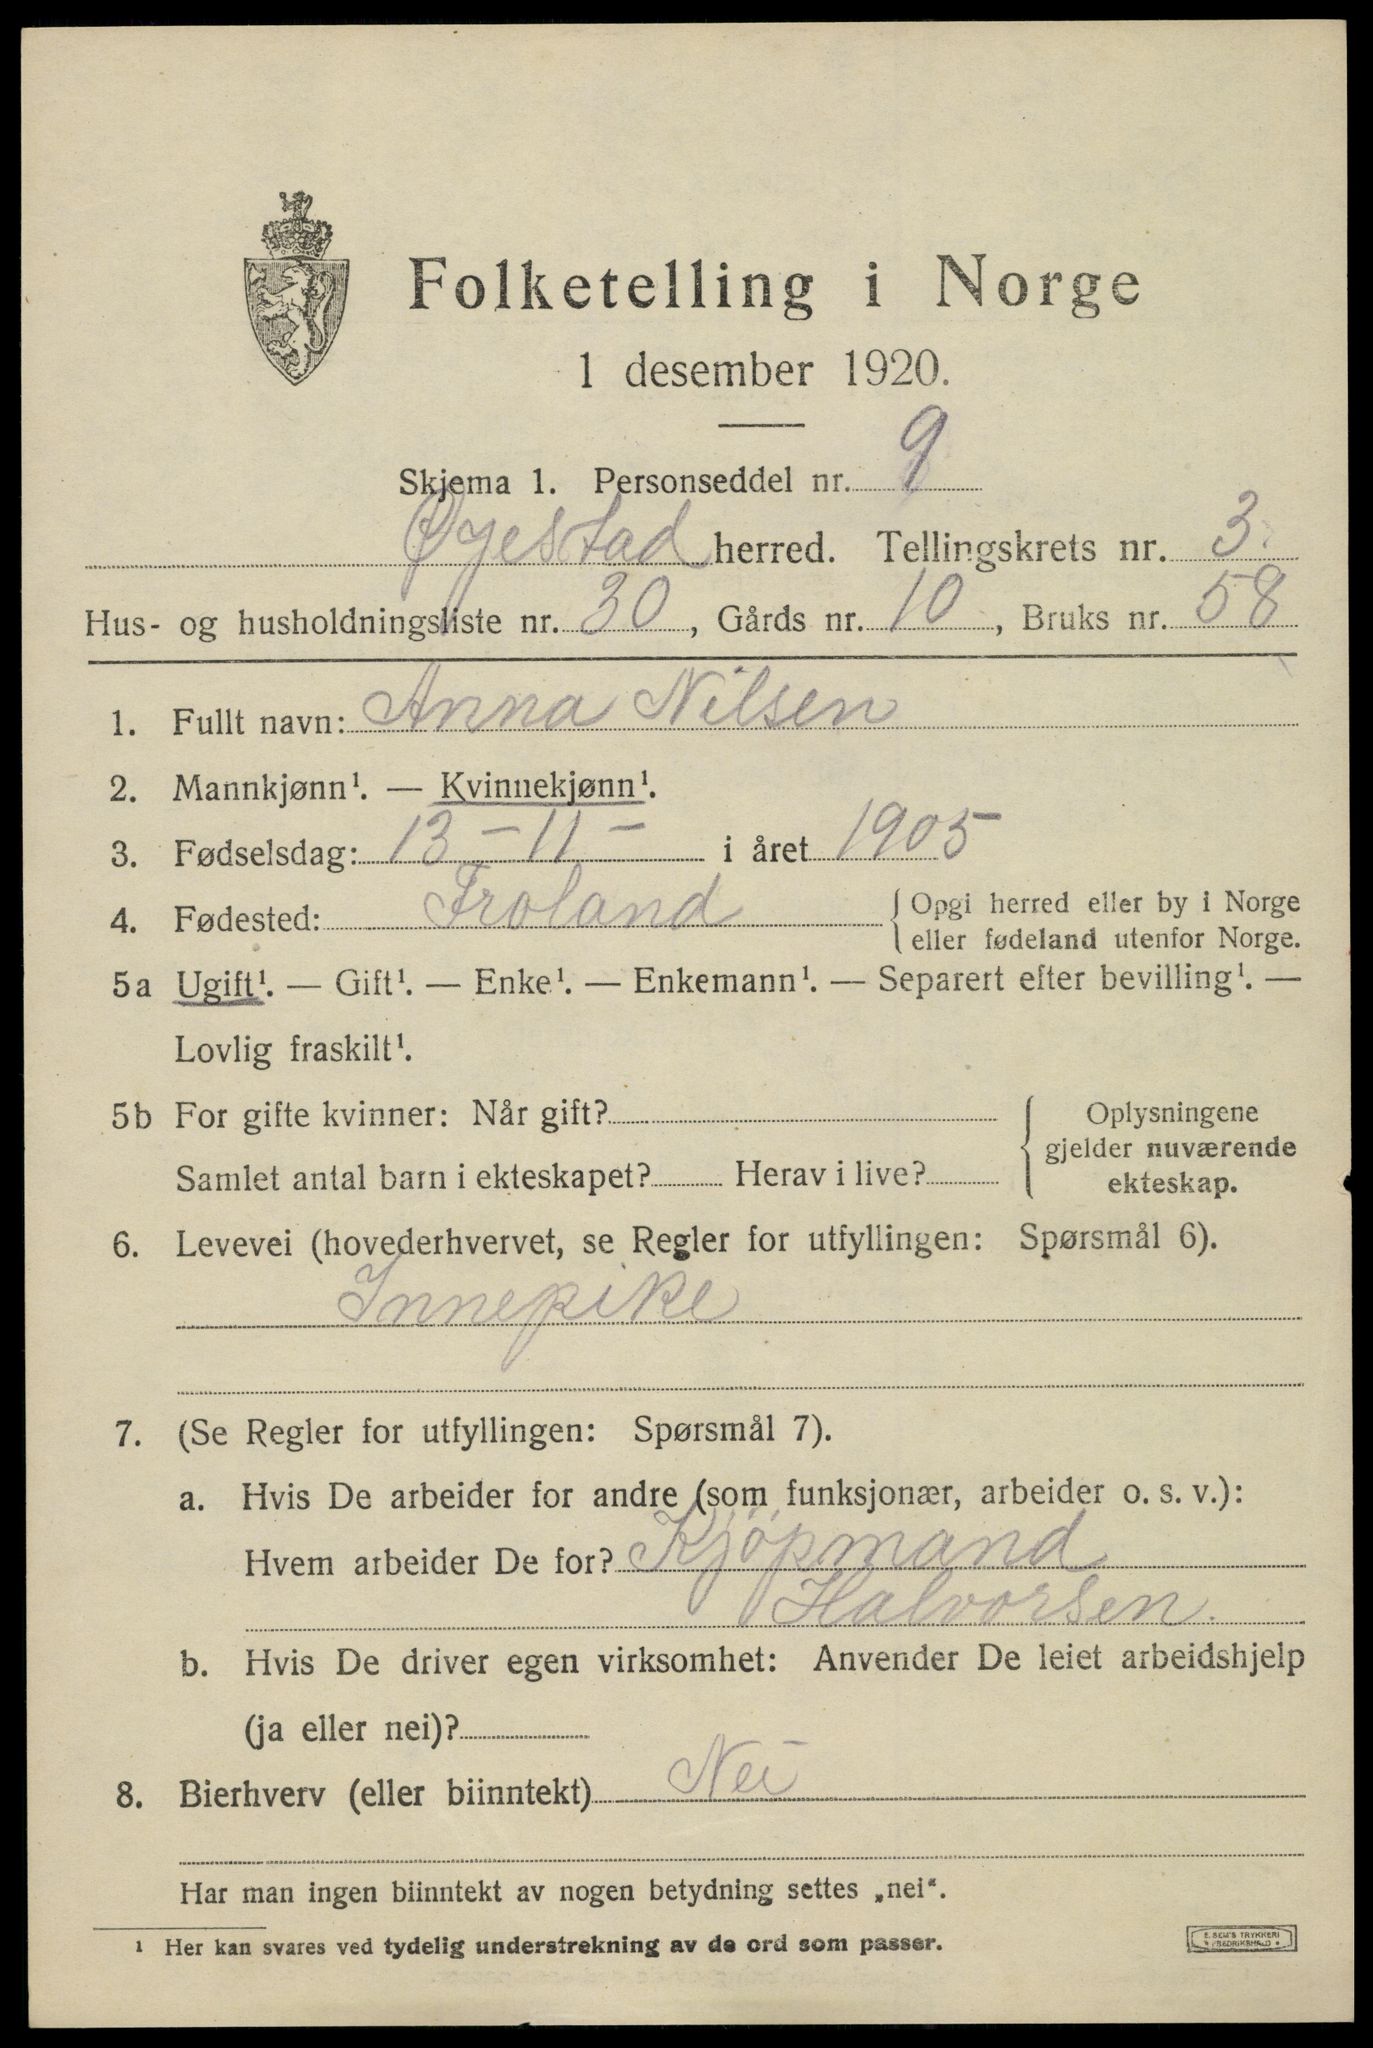 Folketelling i Norge
1 desember 1920.
Skjema 1. Personseddel nr. 9
Øyestad herred. Tellingskrets nr. 3.
Hus- og husholdningsliste nr. 30, Gårds nr. 10, Bruks nr. 58
1. Fullt navn: Anna Nilsen
2. Mannkjønn¹. — Kvinnekjønn¹.
3. Fødselsdag: 13 - 11 - i året 1905
4. Fødested: Froland { Opgi herred eller by i Norge
eller fødeland utenfor Norge.
5a Ugift¹. — Gift¹. — Enke¹. — Enkemann¹. — Separert efter bevilling¹. —
Lovlig fraskilt¹.
5b For gifte kvinner: Når gift? { Oplysningene
gjelder nuværende
Samlet antal barn i ekteskapet? Herav i live? ekteskap.
6. Levevei (hovederhvervet, se Regler for utfyllingen: Spørsmål 6).
Innepike
7. (Se Regler for utfyllingen: Spørsmål 7).
a. Hvis De arbeider for andre (som funksjonær, arbeider o. s. v.):
Hvem arbeider De for? Kjøpmand
Halvorsen.
b. Hvis De driver egen virksomhet: Anvender De leiet arbeidshjelp
(ja eller nei)?
8. Bierhverv (eller biinntekt) Nei
Har man ingen biinntekt av nogen betydning settes „nei“.
¹ Her kan svares ved tydelig understrekning av de ord som passer.
E. SEM'S TRYKKERI
FREDRIKSHALD